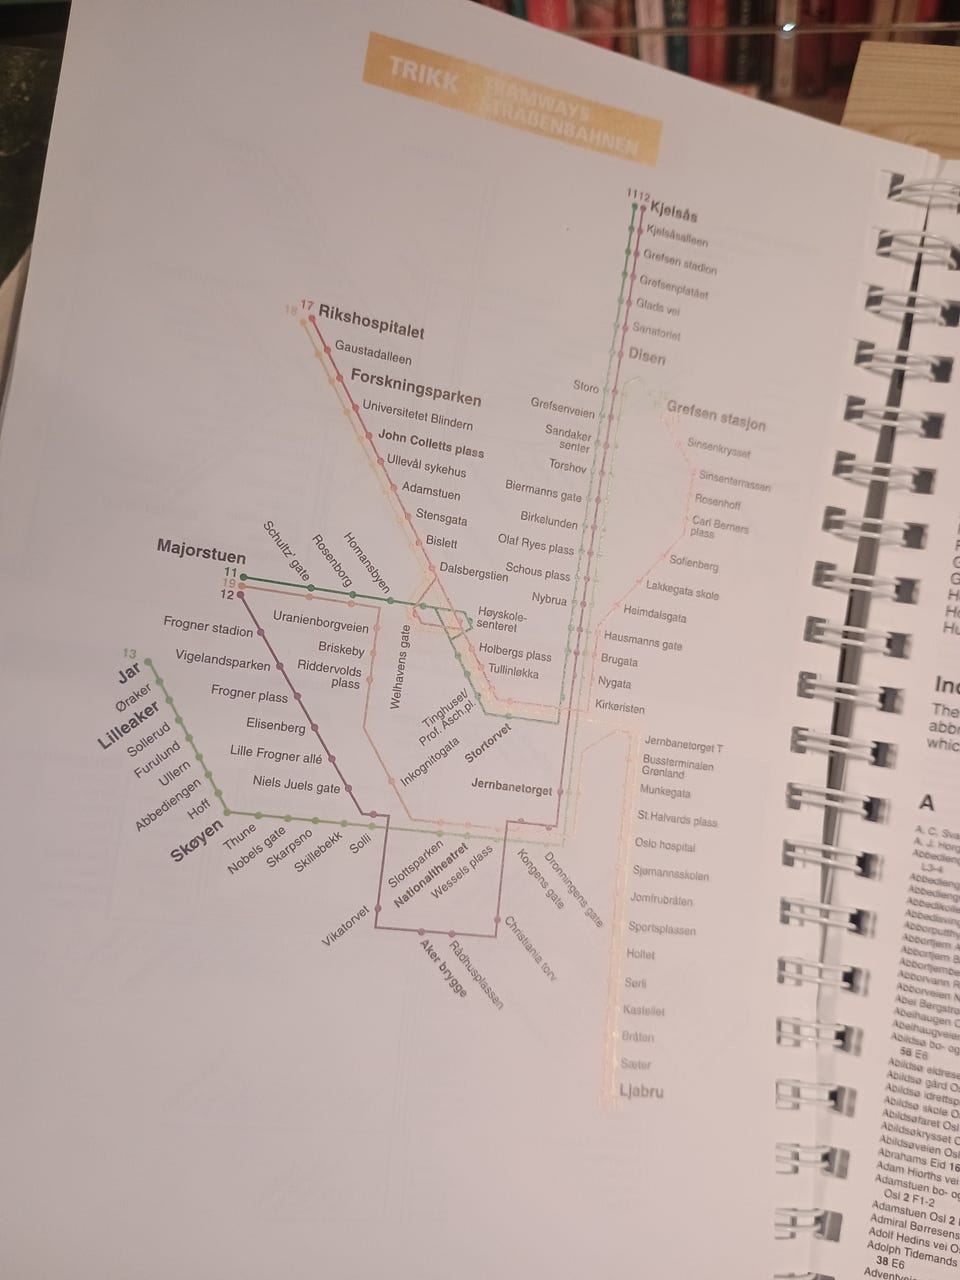 TRIKK
TRAMWAYS
STRAßENBAHNEN
11 12
Kjelsås
Kjelsåsalleen
Grefsen stadion
Grefsenplatået
Glads vei
Sanatoriet
Disen
Storo
Grefsenveien
Sandaker
senter
Torshov
Biermanns gate
Birkelunden
Olaf Ryes plass
Schous plass
Nybrua
Grefsen stasjon
Sinsenkrysset
Sinsenterrassen
Rosenhoff
Carl Berners
plass
Sofienberg
Lakkegata skole
Heimdalsgata
Hausmanns gate
Brugata
Nygata
Kirkeristen
18
17
Rikshospitalet
Gaustadalleen
Forskningsparken
Universitetet Blindern
John Colletts plass
Ullevål sykehus
Adamstuen
Stensgata
Bislett
Dalsbergstien
Høyskole-
senteret
Holbergs plass
Tullinløkka
Majorstuen
11
19
12
Schultz' gate
Rosenborg
Homansbyen
Uranienborgveien
Briskeby
Riddervolds
plass
Welhavens gate
Tinghuset/
Prof. Asch.pl.
Inkognitogata
Stortorvet
Frogner stadion
Vigelandsparken
Frogner plass
Elisenberg
Lille Frogner allé
Niels Juels gate
Jernbanetorget
13
Jar
Øraker
Lilleaker
Sollerud
Furulund
Ullern
Abbediengen
Hoff
Skøyen
Thune
Nobels gate
Skarpsno
Skillebekk
Solli
Slottsparken
Nationaltheatret
Wessels plass
Kongens gate
Dronningens gate
Vikatorvet
Aker brygge
Rådhusplassen
Christiania torv
Jernbanetorget T
Bussterminalen
Grønland
Munkegata
St.Halvards plass
Oslo hospital
Sjømannsskolen
Jomfrubråten
Sportsplassen
Holtet
Sørli
Kastellet
Bråten
Sæter
Ljabru
The
abbr
whic
A
A. C. Sva
A. J. Horg
Abbedieng
L3-4
56 E6
Abrahams Eid 16
Adam Hiorths vei
Adamstuen bo- og
Osl 2 F1-2
Adamstuen Osl 2
Admiral Børresens
Adolf Hedins vei O
Adolph Tidemands
38 E6